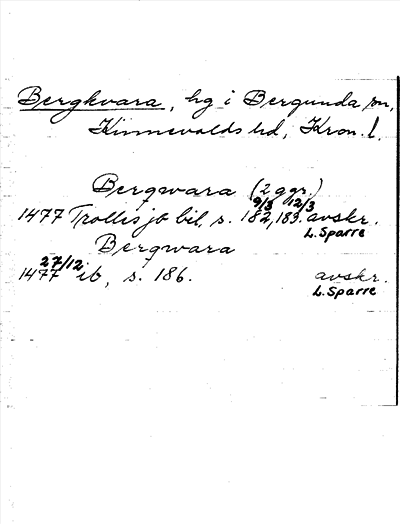 Bergkvara, hg i Bergunda sn,
Kinnevalds hd, Kron. l.
Bergqvara (2 ggr.)
9/3 12/3
1477 Trollesjö bil, s. 182, 183. avskr.
L. Sparre
Bergwara
27/12
1477 ib, s. 186. avskr.
L. Sparre